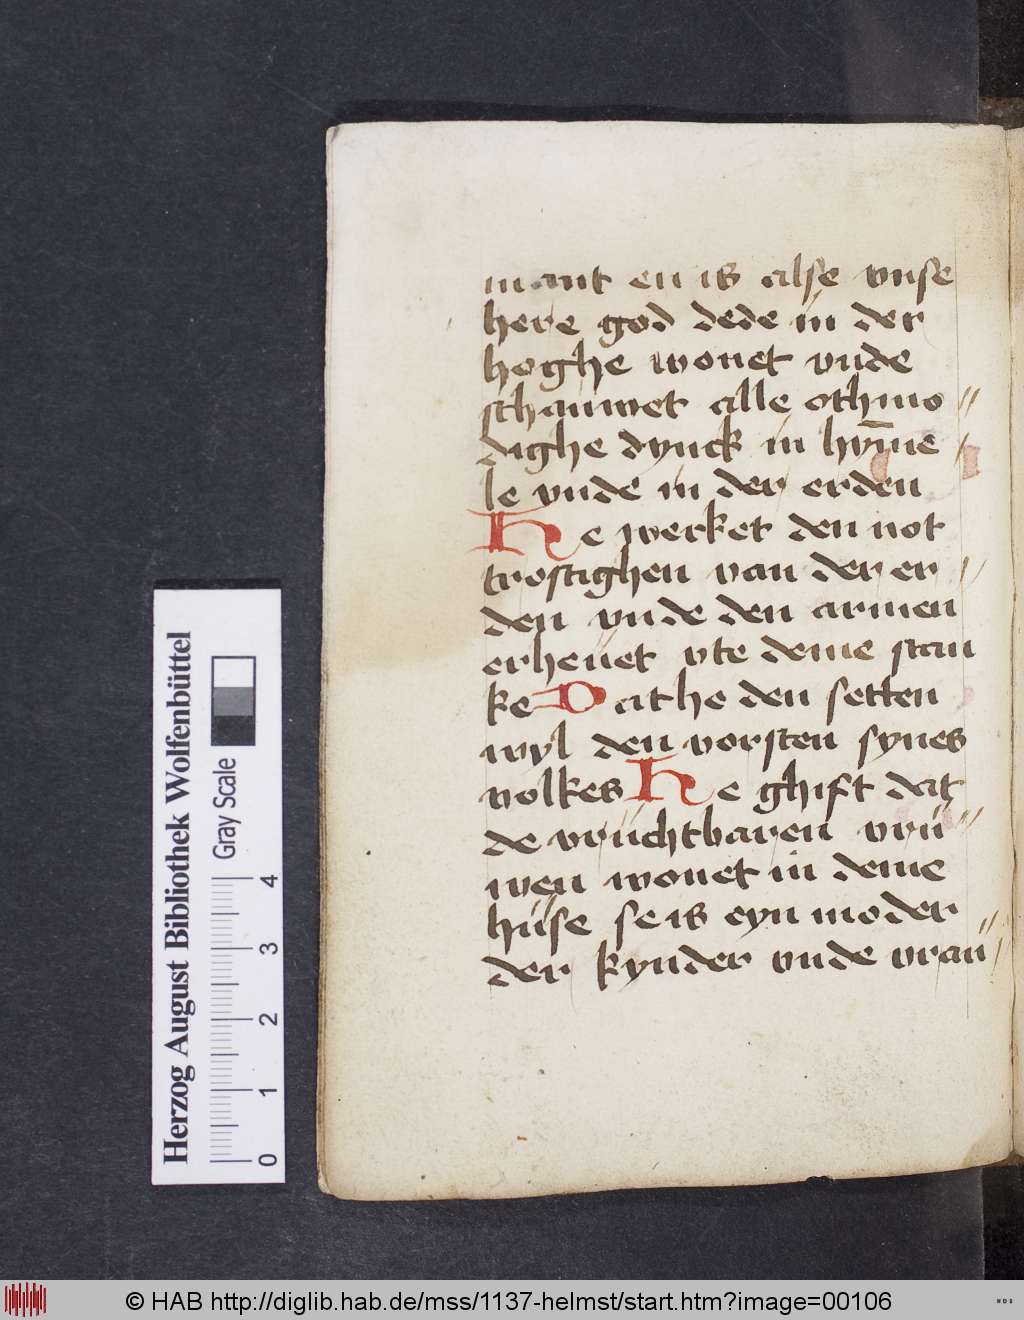 mant en is alse vnse
here god dede in der
hoghe wonet vnde
schauwet alle othmo//
dighe dynck in hym̄e//
le vnde in der erden
He werket den not
trostighen van der er//
den vnde den armen
erheuet vte deme stan
ke Dat he den setten
wyl den vorsten synes
volkes He ghift dat
de vruchtbaren vru//
wen wonet in deme
huse se is eyn moder
der kynder vnde vrau//
Herzog August Bibliothek Wolfenbüttel
Gray Scale
0 1 2 3 4
© HAB http://diglib.hab.de/mss/1137-helmst/start.htm?image=00106